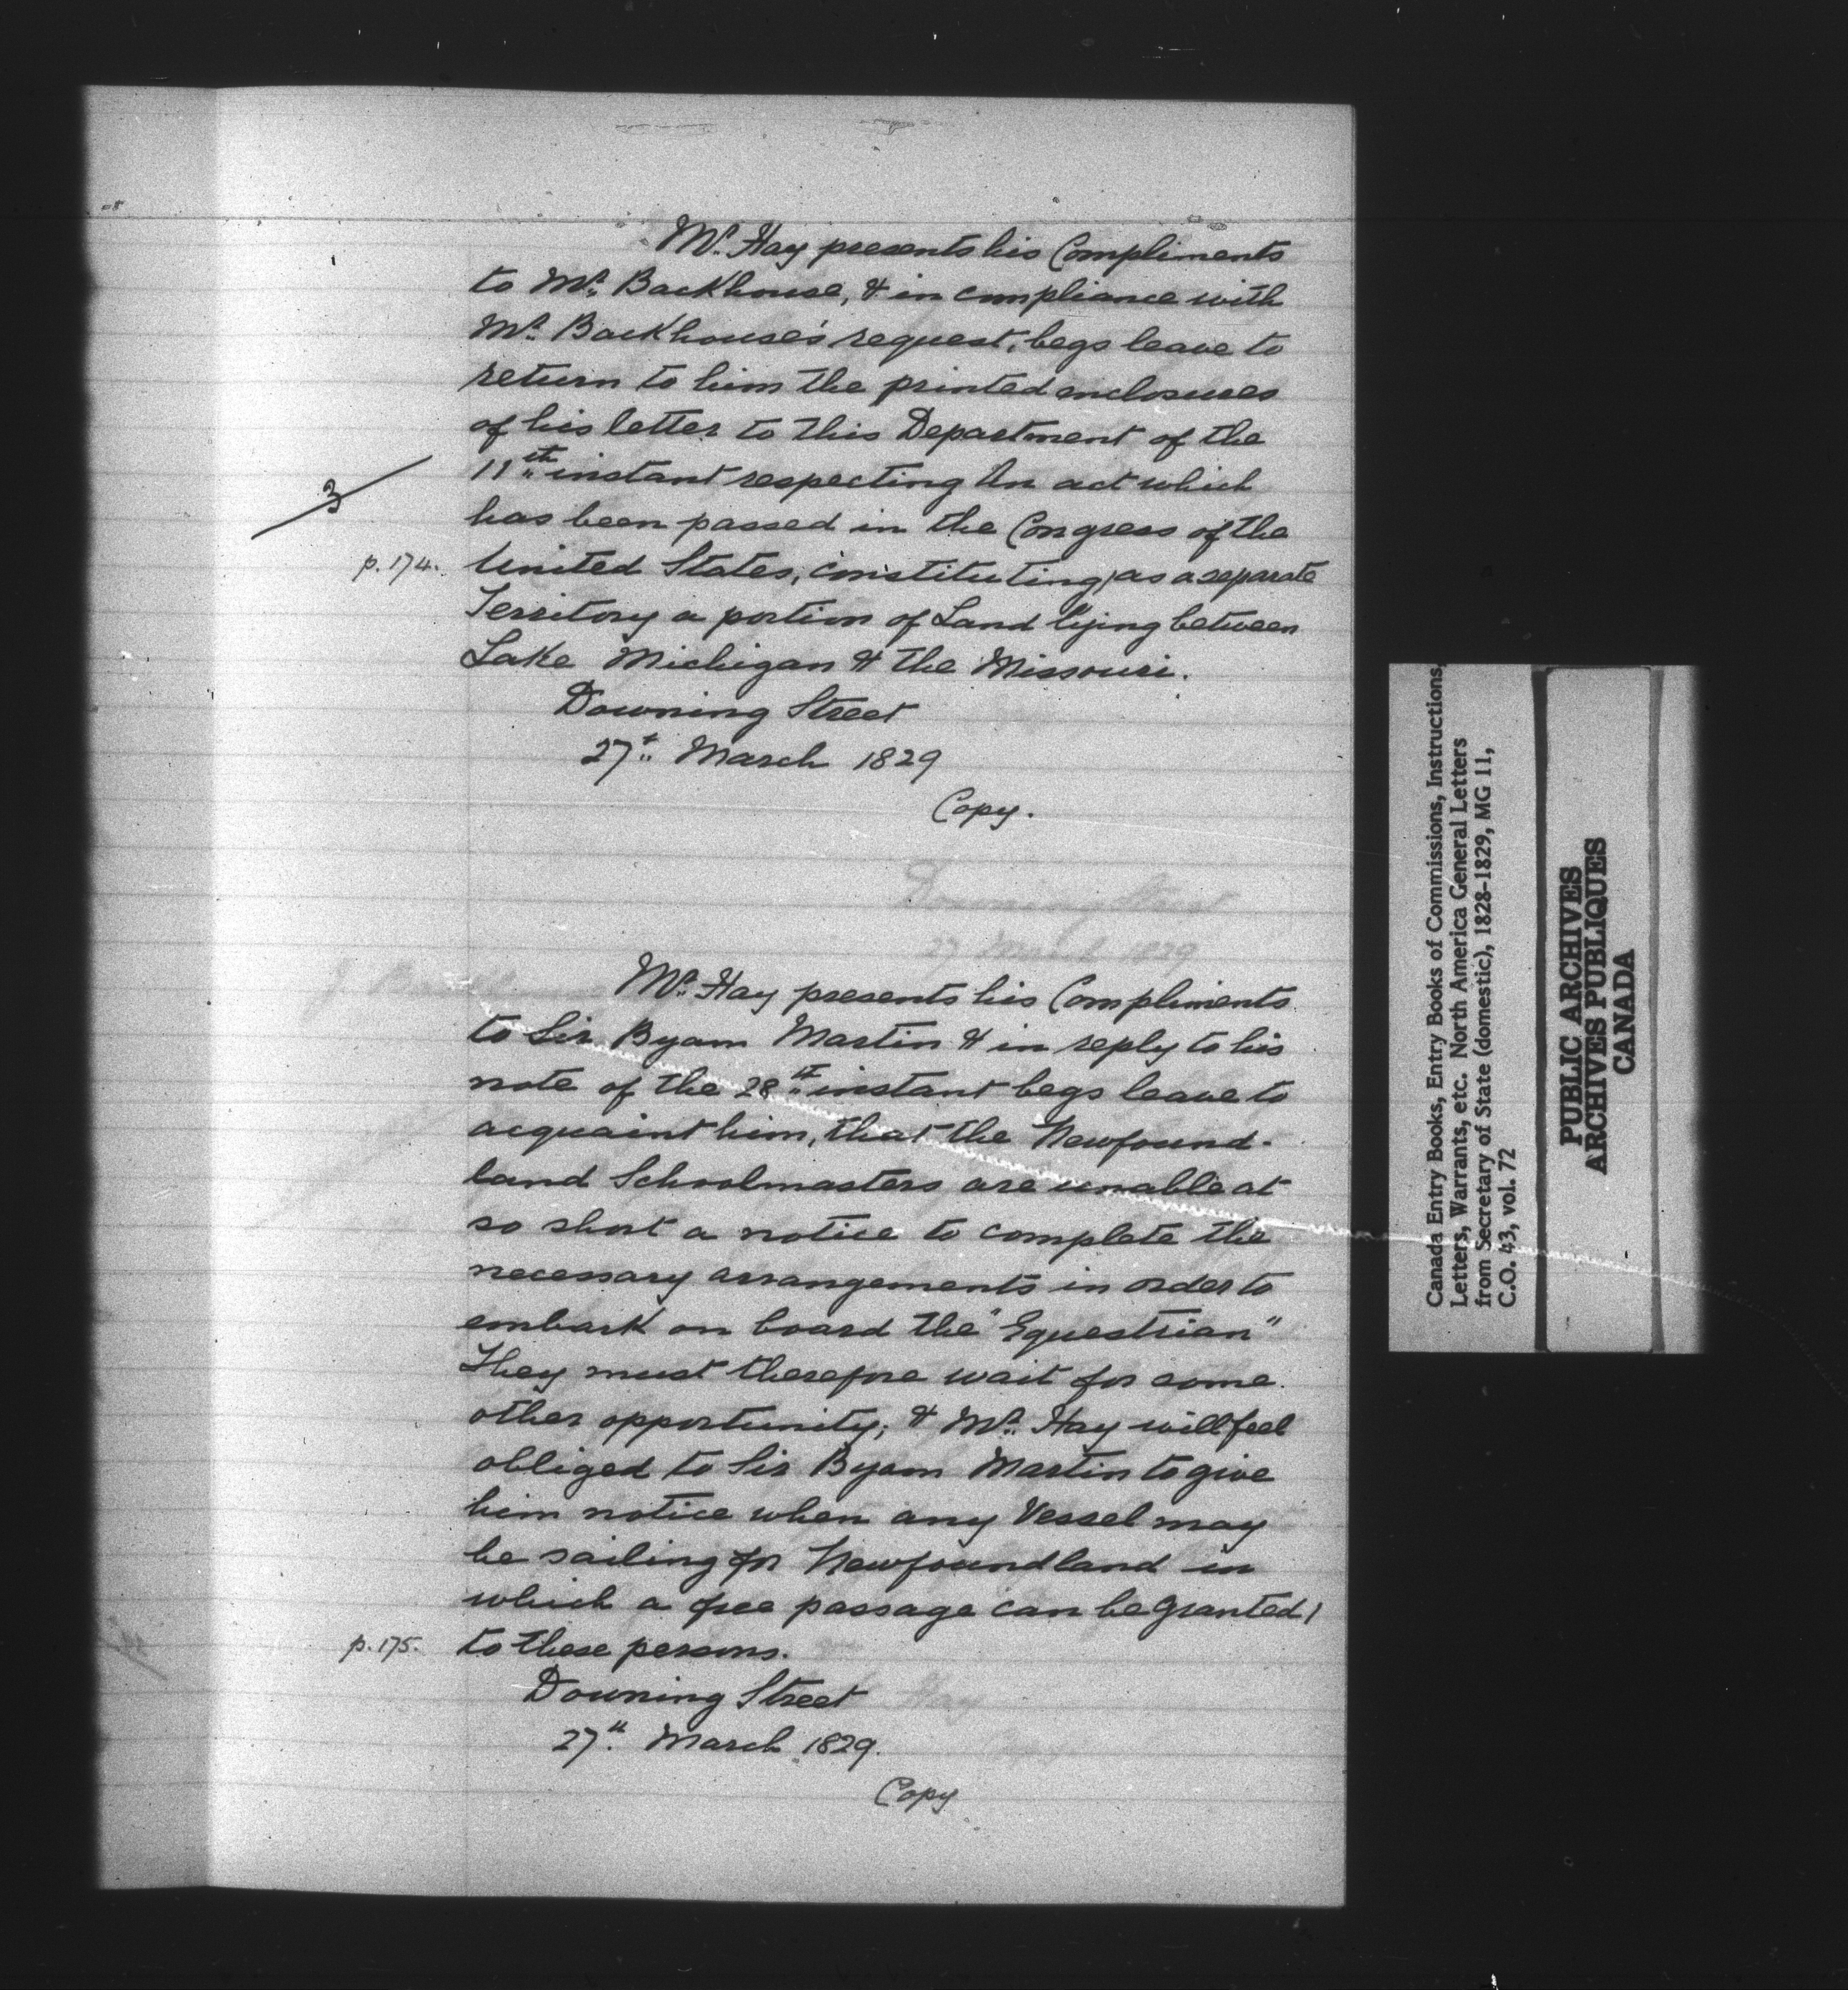 Mr. Hay presents his Compliments
to Mr. Backhouse, & in compliance with
Mr. Backhouse's request, begs leave to
return to him the printed inclosures
of his letter to this Department of the
11th instant respecting An act which
3
has been passed in the Congress of the
p. 174. United States, constituting, as a separate
Territory a portion of Land lying between
Lake Michigan & the Missouri.
Downing Street
27th March 1829
Copy.
Downing Street
27 March 1829
Mr. Hay presents his Compliments
to Sir Byam Martin & in reply to his
note of the 28th instant begs leave to
acquaint him, that the Newfound-
land Schoolmasters are unable at
so short a notice to complete the
necessary arrangements in order to
embark on board the "Equestrian"
They must therefore wait for some
other opportunity; & Mr. Hay will feel
obliged to Sir Byam Martin to give
him notice when any Vessel may
be sailing for Newfoundland in
which a free passage can be granted /
p. 175. to these persons.
Downing Street
27th March 1829.
Copy
Canada Entry Books, Entry Books of Commissions, Instructions,
Letters, Warrants, etc. North America General Letters
from Secretary of State (domestic), 1828-1829, MG 11,
C.O. 43, vol. 72
PUBLIC ARCHIVES
ARCHIVES PUBLIQUES
CANADA